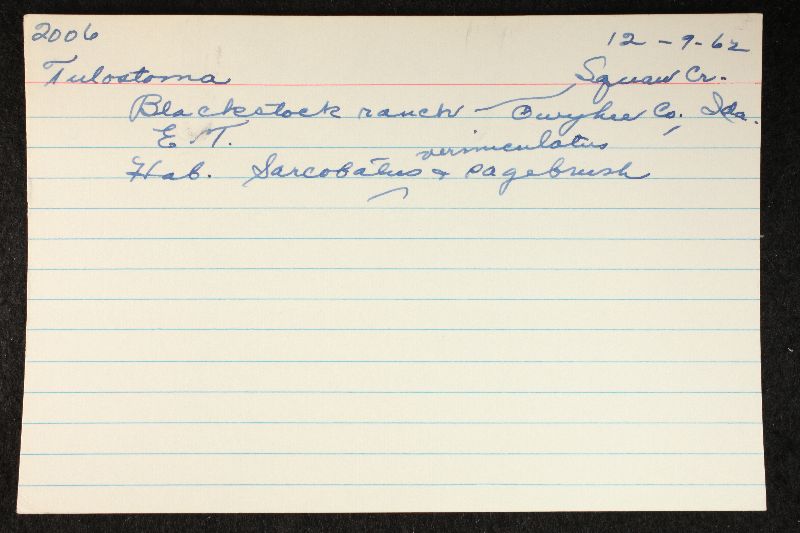 2006 12-9-62
Tulostoma Squaw Cr.
Blackstock ranch - Owyhee Co., Ida.
E T.
vermiculatus
Hab. Sarcobatus & sagebrush